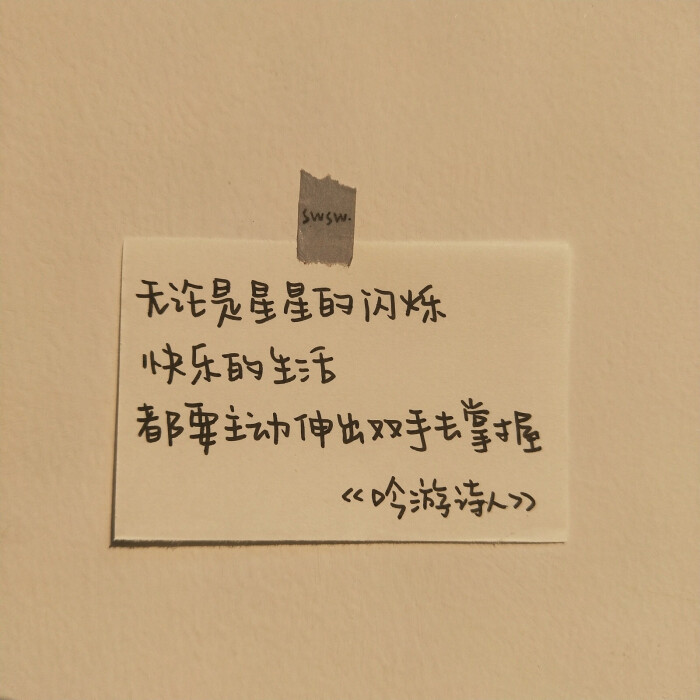 swsw.
无论是星星的闪烁
快乐的生活
都要主动伸出双手去掌握
《吟游诗人》